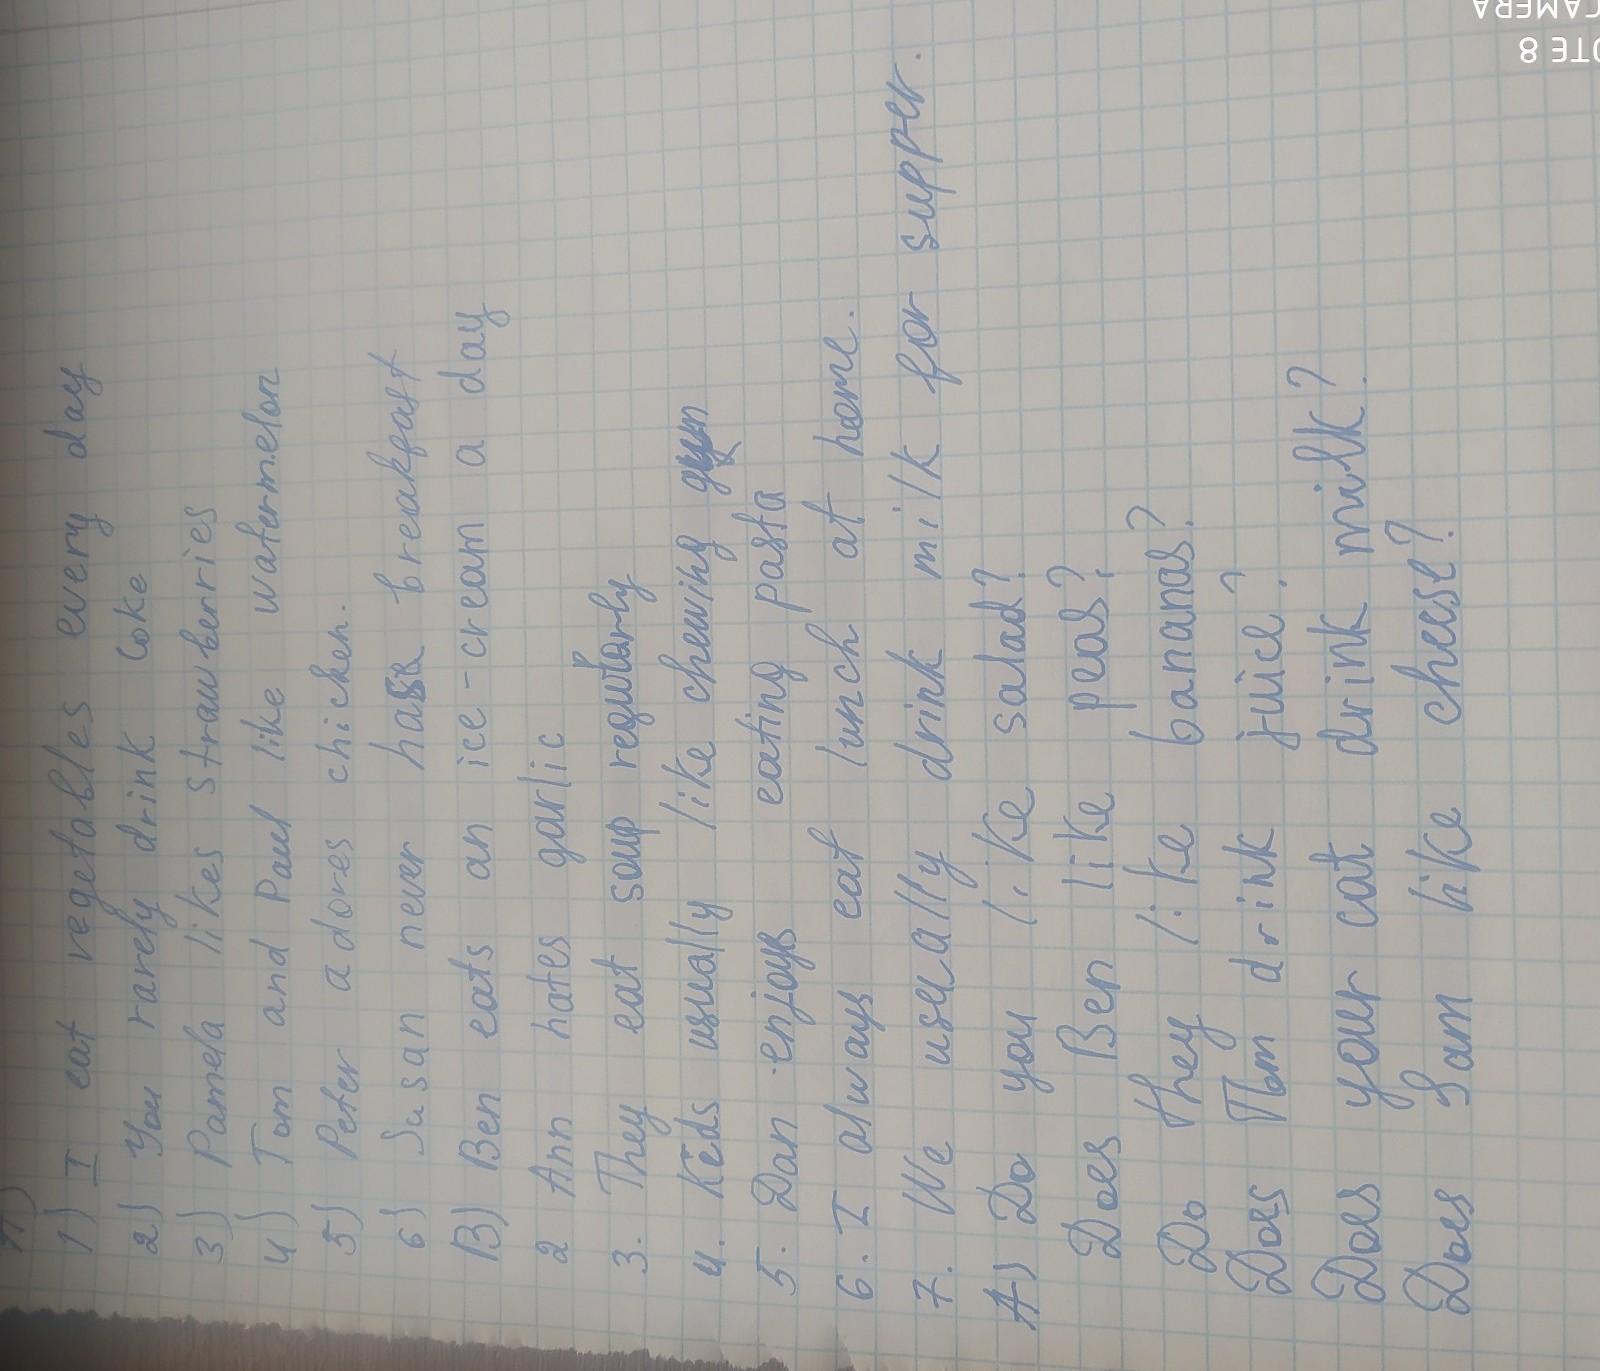 A)
1) I eat vegetables every day
2) You rarely drink Coke
3) Pamela likes strawberries
4) Tom and Paul like watermelon
5) Peter adores chicken.
6) Susan never has breakfast
B) Ben eats an ice-cream a day
2 Ann hates garlic
3. They eat soup regularly
4. Keds usually like chewing gum
5. Dan enjoys eating pasta
6. I always eat lunch at home.
7. We usually drink milk for supper.
A) Do you like salad?
Does Ben like peas?
Do they like bananas?
Does Tom drink juice?
Does your cat drink milk?
Does Sam like cheese?
OTE 8
CAMERA